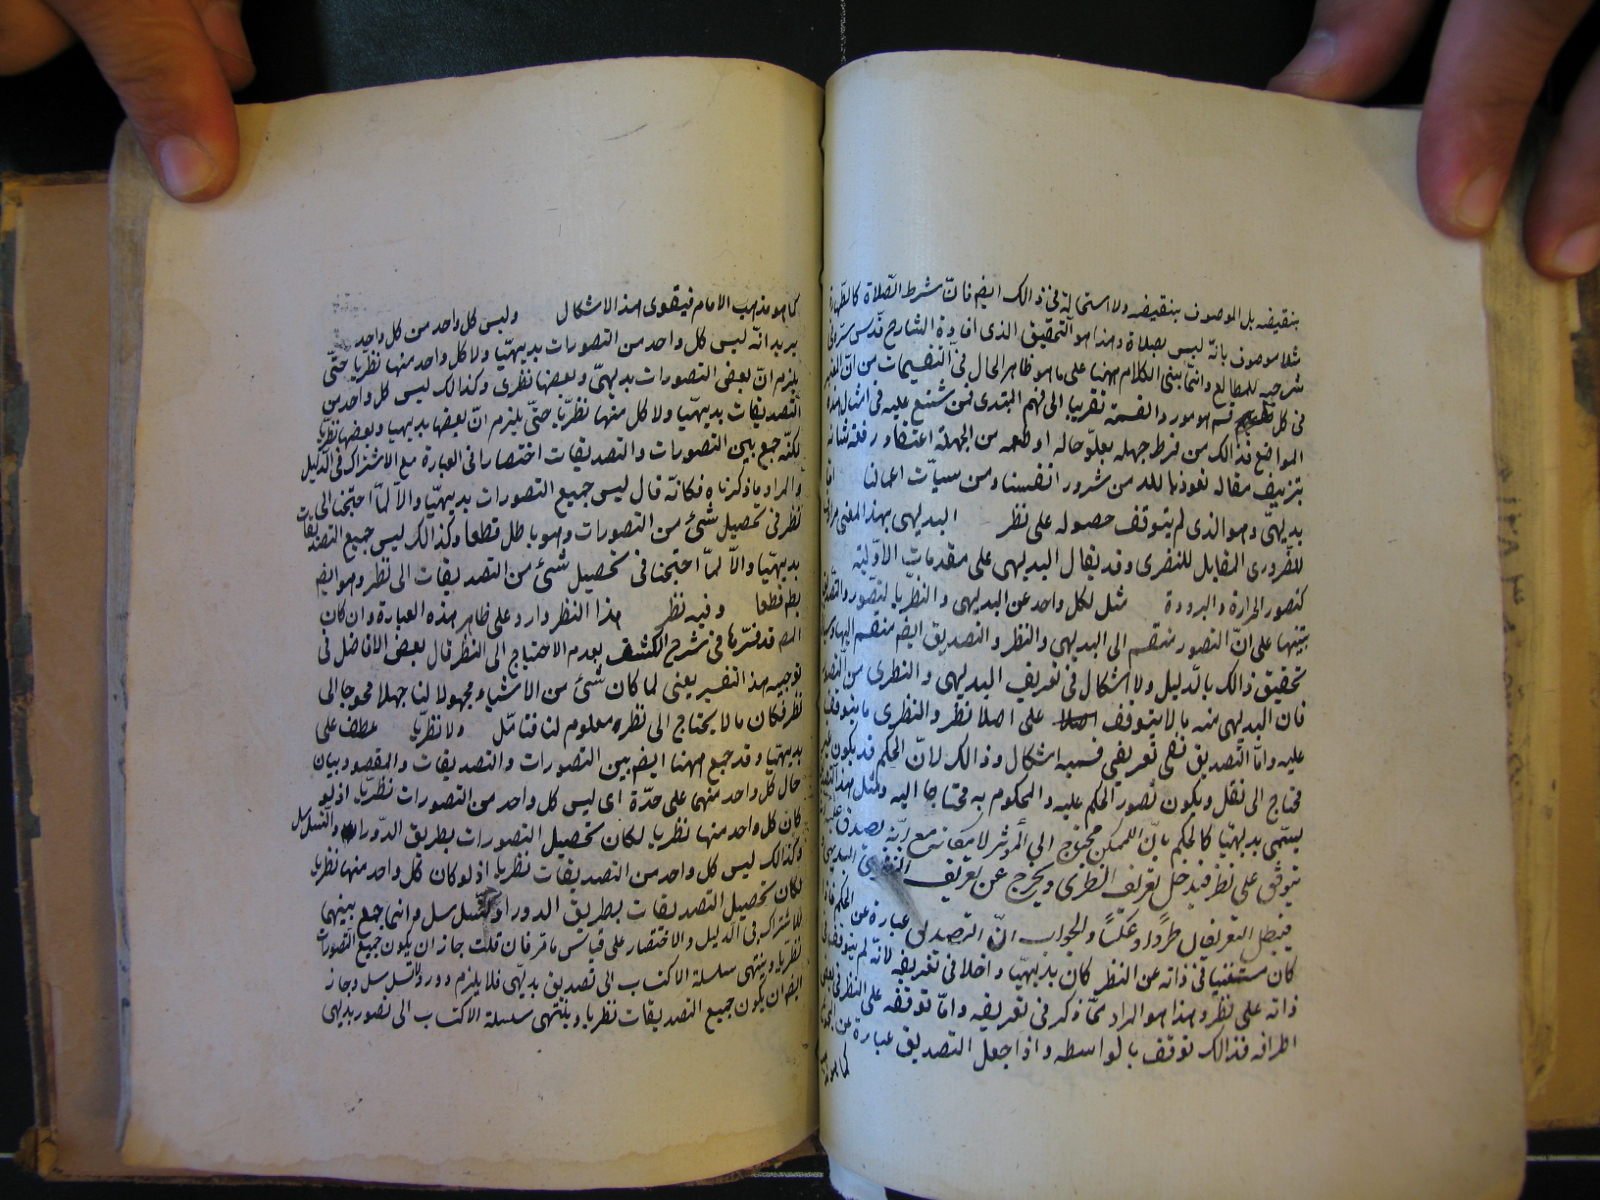 بنقيضه بل الموصوف بنقيضه ولا استحالة فى ذالك ايضم فانّ شرط الصّلاة كالطّهارة
مثلا موصوف بانّه ليس بصلاة وهذا هو التحقيق الذى افادة الشارح قدّس سرّه فى
شرحيه للمطالع وانّما بنى الكلام ههنا على ما هو ظاهر الحال فى التقسيمات من انّ
فى كل قسم هو مورد القسمة تقريبا الى فهم المبتدى فمن شنّع عليه فى امثال هذه
المواضع فذالك من فرط جهله بعلوّ حاله او طمعه من الجهلة اعتقاد رفعة شانه
بتزييف مقاله نعوذ بالله من شرور انفسنا ومن سيّات اعمالنا اما
بديهىّ وهو الذى لم يتوقف حصوله على نظر البديهى بهذا المعنى مرادف
للضّرورى المقابل للنظرى وقد يقال البديهى على مقدمات الاوّلية
كتصور الحرارة والبرودة مثل لكل واحد عن البديهى والنظريّا لتصّور والتصديق
تنبيها على انّ التصور منقسم الى البديهى والنظر والتصديق ايضم منقسم اليهما
تحقيق ذالك بالدّليل ولا اشكال فى تعريف البديهى والنظرى من التصور
فان البديهى منه ما لا يتوقف اصلا على نظر والنظرى ما يتوقف
عليه وامّا التّصديق ففى تعريفى قسميه اشكال وذالك لانّ الحكم قد يكون غير
محتاج الى نظر ويكون تصور الحكم عليه والمحكوم به محتاجا اليه ومثل هذا
يسمّى بديهيّا كالحكم بانّ الممكن محتاج الى المؤثر لامكانه مع انّه يصدق عليه
يتوقف على نظر فيدخل تعريف النظرى ويخرج عن تعريف البديهى
فيبطل التعريفان طردا وعكسا والجواب انّ التصديق عبارة عن الحكم فاذا
كان مستغنيا فى ذاته عن النظر كان بديهيّا داخلا فى تعريفه لانّه لم يتوقف فى
ذاته على نظر وهذا هو المراد ممّا ذكر فى تعريفه وامّا توقفه على النظر فى
اطرافه فذالك توقف بالواسطه واذا جعل التصديق عبارة عن
كما هو
كما هو مذهب الامام فيقوى هذا الاشكال وليس كل واحد من كل واحد
يريد انّه ليس كل واحد من التصورات بديهيّا ولا كل واحد منها نظريّا حتّى
يلزم انّ بعض التصورات بديهىّ وبعضها نظرى وكذالك ليس كل واحد من
التّصديقات بديهيّا ولا كل منها نظريّا حتّى يلزم انّ بعضها بديهيا وبعضها نظريّا
لكنّه جمع بين التصورات والتصديقات اختصارا فى العبارة مع الاشتراك فى الدّليل
والمراد ما ذكرناه فكانّه قال ليس جميع التصورات بديهيّا والّا لمّا احتجنا الى
نظر فى تحصيل شئ من التصورات وهو باطل قطعا وكذالك ليس جميع التصديقات
بديهيّا والّا لمّا احتجنا فى تحصيل شئ من التصديقات الى نظر وهو ايضم
بط قطعا وفيه نظر هذا النظر وارد على ظاهر هذه العبارة وان كان
المص قد فسّرها فى شرح الكشف بعدم الاحتياج الى النظر قال بعض الافاضل فى
توجيه هذا التفسير يعنى لما كان شئ من الاشياء مجهولا لنا جهلا محوجا الى
نظر فكان ما لا يحتاج الى نظر معلوم لنا فتامّل ولا نظريّا عطف على
بديهيّا وقد جمع ههنا ايضم بين التصورات والتصديقات والمقصود بيان
حال كل واحد منهما على حدّة اى ليس كل واحد من التصورات نظريّا اذ لو
كان كل واحد منها نظريا لكان تحصيل التصورات بطريق الدّور او التسلسل
وكذالك ليس كل واحد من التصديقات نظريا اذ لو كان كل واحد منها نظريا
لكان تحصيل التصديقات بطريق الدور او التسلسل وانّما جمع بينهما
للاشتراك فى الدّليل والاختصار على قياس ما مرّ فان قلت جاز ان يكون جميع التصورات
نظريّا وينتهى سلسلة الاكتساب الى تصديق بديهّى فلا يلزم دور ولا تسلسل وجاز
ايضم ان يكون جميع التصديقات نظريا وينتهى سلسلة الاكتساب الى تصور بديهى